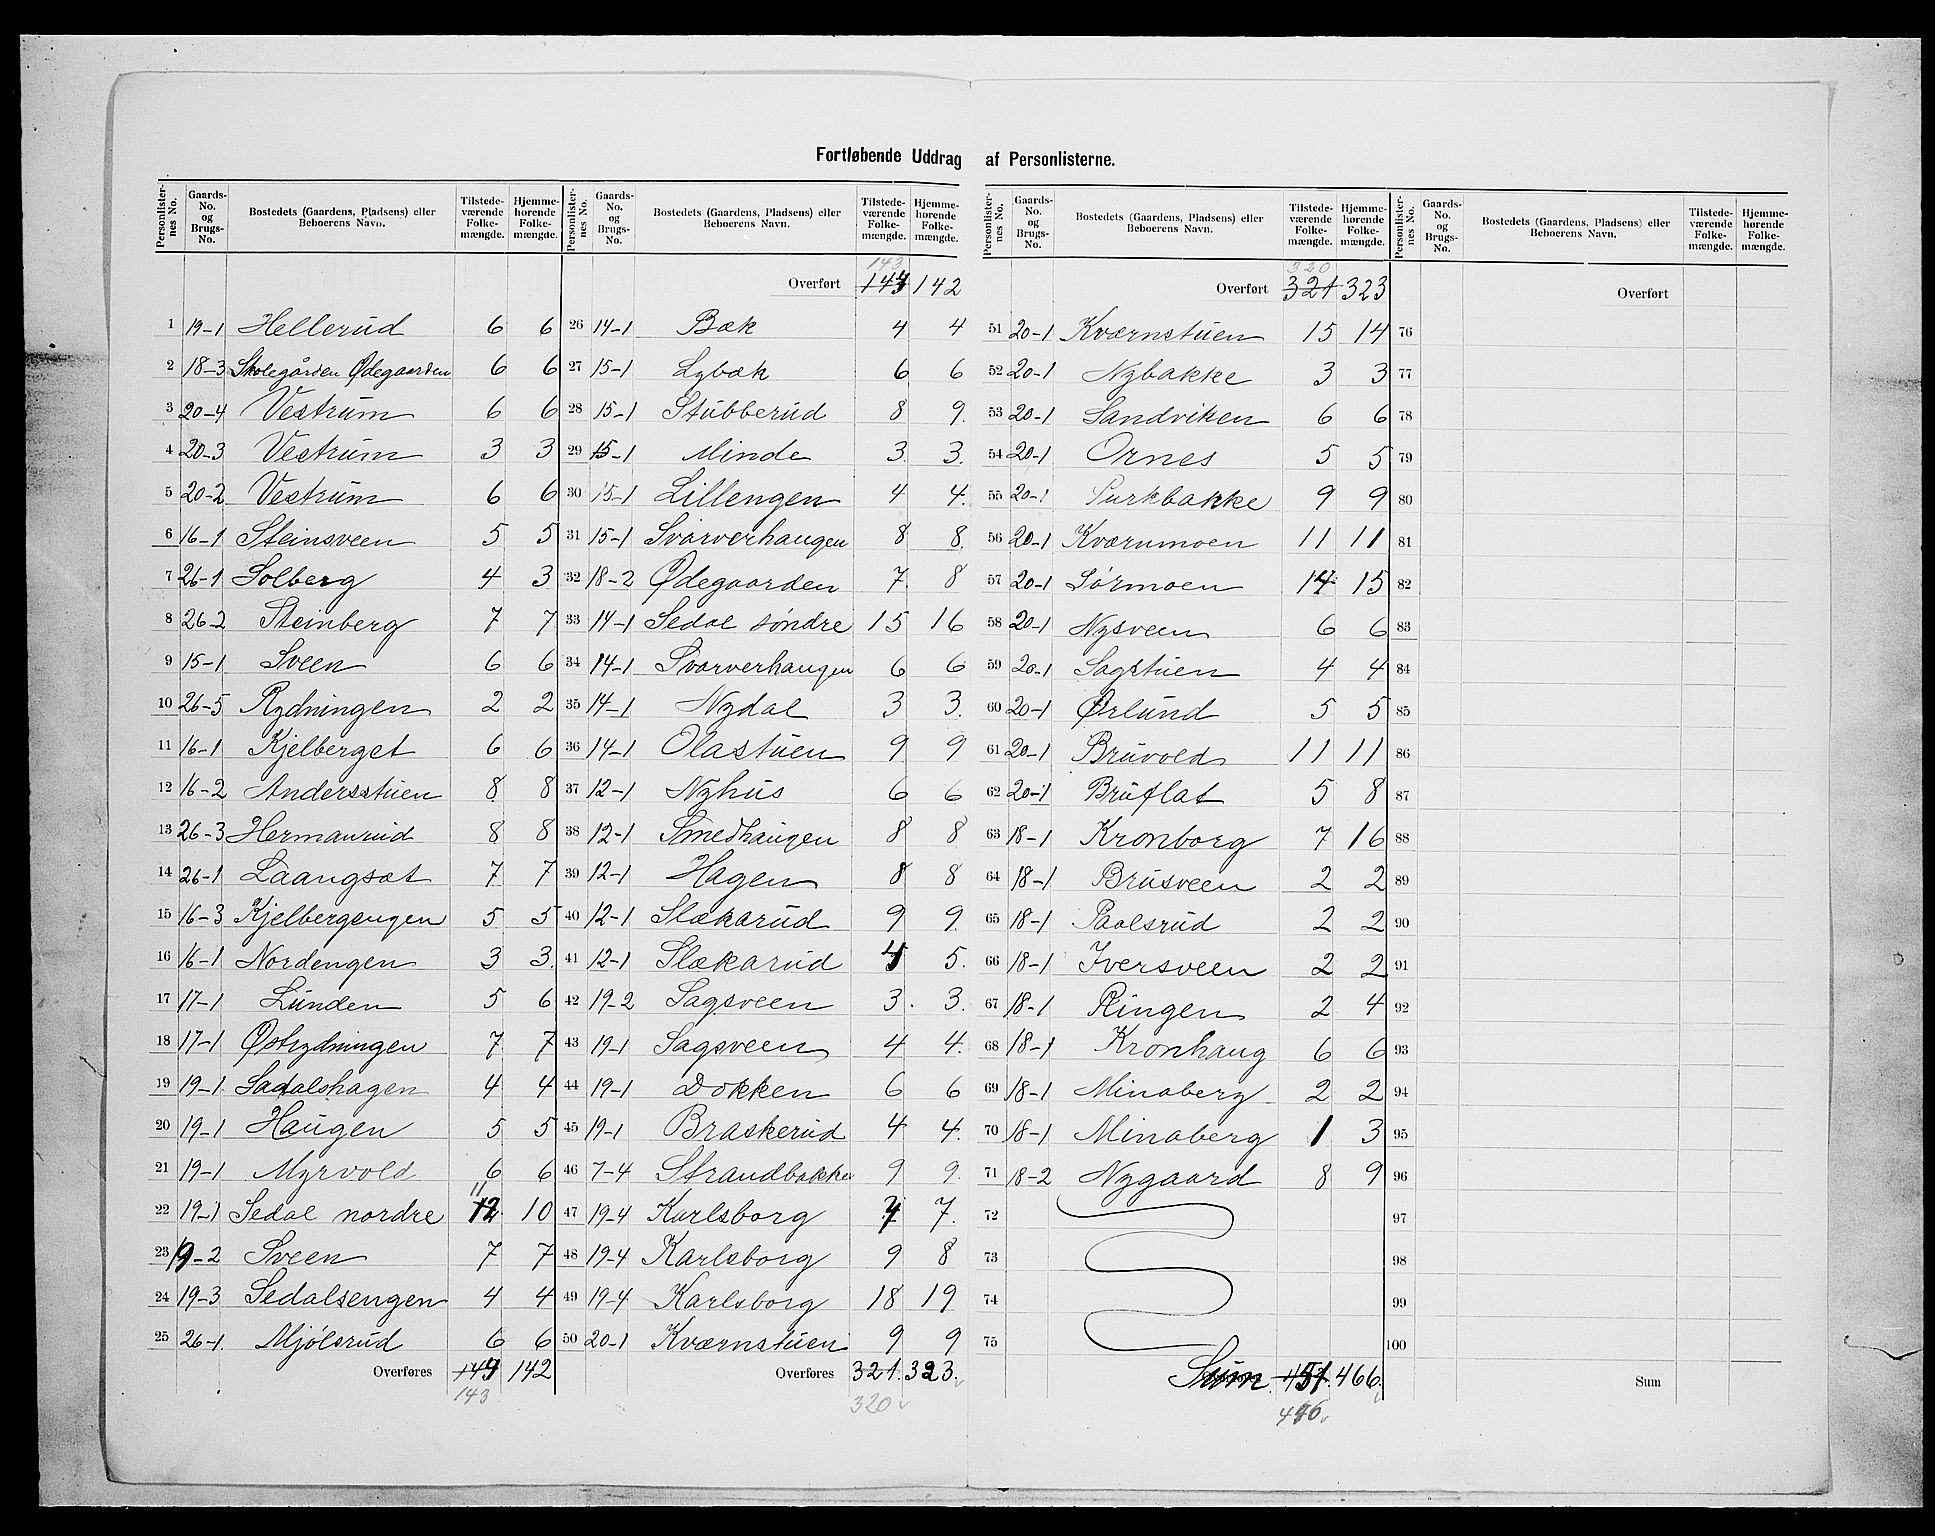 Fortløbende Uddrag af Personlisternes.
Personlister-nes No. Gaards-No. og Brugs-No. Bostedets (Gaardens, Pladsens) eller Beboerens Navn. Tilstede-værende Folke-mængde. Hjemme-hørende Folke-mængde.
1 19-1 Hellerud 6 6
2 18-3 Skolegården Ødegaarden 6 6
3 20-4 Vestrum 6 6
4 20-3 Vestrum 3 3
5 20-2 Vestrum 6 6
6 16-1 Steinsveen 5 5
7 26-1 Solberg 4 3
8 26-2 Steinberg 7 7
9 15-1 Sveen 6 6
10 26-5 Rydningen 2 2
11 16-1 Kjelberget 6 6
12 16-2 Andersstuen 8 8
13 26-3 Hermanrud 8 8
14 26-1 Laangsæt 7 7
15 16-3 Kjelbergengen 5 5
16 16-1 Nordengen 3 3.
17 17-1 Lunden 5 6
18 17-1 Østrydningen 7 7
19 19-1 Sadalshagen 4 4
20 19-1 Haugen 5 5
21 19-1 Myrvold 6 6
22 19-1 Sedal nordre 11 12 10
23 19-2 Sveen 7 7
24 19-3 Sedalsengen 4 4
25 26-1. Mjølsrud 6 6
Overføres 144 142
143
Personlister-nes No. Gaards-No. og Brugs-No. Bostedets (Gaardens, Pladsens) eller Beboerens Navn. Tilstede-værende Folke-mængde. Hjemme-hørende Folke-mængde.
143
Overført 144 142
26 14-1 Bæk 4 4
27 15-1 Lybæk 6 6
28 15-1 Stubberud 8 9.
29 15-1 Minde 3 3.
30 15-1 Lillengen 4 4.
31 15-1 Svarverhaugen 8 8.
32 18-2 Ødegaarden 7 8
33 14-1 Sedal søndre 15 16
34 14-1 Svarverhaugen 6 6
35 14-1 Nydal 3 3.
36 14-1 Olastuen 9 9
37 12-1 Nyhus 6 6
38 12-1 Smedhaugen 8 8
39 12-1 Hagen 8 8
40 12-1 Slækarud 9 9.
41 12-1 Slækarud 4 5.
42 19-2 Sagsveen 3. 3.
43 19-1 Sagsveen 4 4.
44 19-1 Dokken 6 6
45 19-1 Braskerud 4 4.
46 7-4 Strandbakken 9 9.
47 19-4 Karlsborg 7.
48 19-4 Karlsborg 9 8
49 19-4 Karlsborg 18 19
50 20-1 Kværnstuen 9 9
Overføres 321. 323.
320
Personlister-nes No. Gaards-No. og Brugs-No. Bostedets (Gaardens, Pladsens) eller Beboerens Navn. Tilstede-værende Folke-mængde. Hjemme-hørende Folke-mængde.
320
Overført 321 323
51 20-1 Kværnstuen 15 14
52 20-1 Nybakke 3 3
53 20-1 Sandviken 6 6
54 20-1 Ornes 5 5
55 20-1 Purkbakke 9 9
56 20-1 Kværnmoen 11 11
57 20-1 Sørmoen 14 15
58 20-1 Nysveen 6 6
59 20-1 Sagstuen 4 4
60 20-1 Ørlund 5 5
61 20-1 Bruvold 11 11
62 20-1 Bruflat 5 8
63 18-1 Kronborg 7 16
64 18-1 Brusveen 2 2
65 18-1 Paalsrud 2 2
66 18-1 Iversveen 2 2
67 18-1 Ringen 2 4
68 18-1 Kronhaug 6 6
69 18-1 Minaberg 2 2
70 18-1 Minaberg 1 3
71 18-2 Nygaard 8 9
72
73
74
75
Sum 466.
Personlister-nes No. Gaards-No. og Brugs-No. Bostedets (Gaardens, Pladsens) eller Beboerens Navn. Tilstede-værende Folke-mængde. Hjemme-hørende Folke-mængde.
Overført
76
77
78
79
80
81
82
83
84
85
86
87
88
89
90
91
92
93
94
95
96
97
98
99
100
Sum